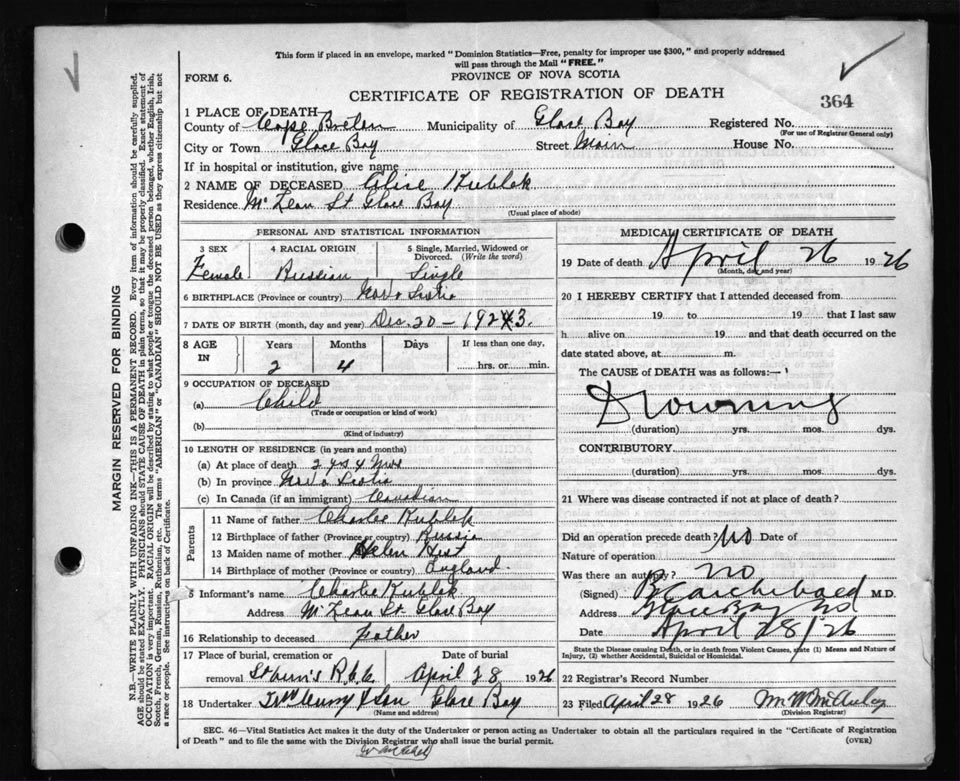 This form if placed in an envelope, marked "Dominion Statistics—Free, penalty for improper use $300," and properly addressed
will pass through the Mail "FREE."
FORM 6.
PROVINCE OF NOVA SCOTIA
CERTIFICATE OF REGISTRATION OF DEATH
364
1 PLACE OF DEATH—
County of Cape Breton Municipality of Glace Bay Registered No.
(For use of Registrar General only)
City or Town Glace Bay Street Main House No.
If in hospital or institution, give name
2 NAME OF DECEASED Alice Kublek
Residence McLean St Glace Bay
(Usual place of abode)
PERSONAL AND STATISTICAL INFORMATION
3 SEX 4 RACIAL ORIGIN 5 Single, Married, Widowed or Divorced. (Write the word)
Female. Russian Single
6 BIRTHPLACE (Province or country) Nova Scotia
7 DATE OF BIRTH (month, day and year) Dec. 20 - 1923.
8 AGE IN Years Months Days If less than one day,
2 4 hrs. or min.
9 OCCUPATION OF DECEASED
(a) Child
(Trade or occupation or kind of work)
(b)
(Kind of industry)
10 LENGTH OF RESIDENCE (in years and months)
(a) At place of death 2 yrs 4 mos
(b) In province Nova Scotia
(c) In Canada (if an immigrant) Canadian
Parents
11 Name of father Charlie Kublek
12 Birthplace of father (Province or country) Russia
13 Maiden name of mother Helen
14 Birthplace of mother (Province or country) England.
5 Informant's name Charlie Kublek
Address McLean St. Glace Bay
16 Relationship to deceased Father
17 Place of burial, cremation or removal Date of burial
St Ann's April 28 1926
18 Undertaker & Son Glace Bay
(Name and address)
MEDICAL CERTIFICATE OF DEATH
19 Date of death April 26 1926
(Month, day and year)
20 I HEREBY CERTIFY that I attended deceased from
19 to 19 that I last saw
h alive on 19 and that death occurred on the
date stated above, at m.
The CAUSE of DEATH was as follows:—
Drowning
(duration) yrs. mos. dys.
CONTRIBUTORY
(duration) yrs. mos. dys.
21 Where was disease contracted if not at place of death?
Did an operation precede death? No Date of
Nature of operation
Was there an autopsy? no
(Signed) Archibald M.D.
Address Glace Bay NS
Date April 28/26
State the Disease causing Death, or in death from Violent Causes, state (1) Means and Nature of
Injury, (2) whether Accidental, Suicidal or Homicidal.
22 Registrar's Record Number
23 Filed April 28 1926 McAuley
(Division Registrar)
SEC. 46—Vital Statistics Act makes it the duty of the Undertaker or person acting as Undertaker to obtain all the particulars required in the "Certificate of Registration
of Death" and to file the same with the Division Registrar who shall issue the burial permit.
(OVER)
MARGIN RESERVED FOR BINDING
N.B.—WRITE PLAINLY WITH UNFADING INK—THIS IS A PERMANENT RECORD. Every item of information should be carefully supplied.
AGE should be stated EXACTLY. PHYSICIANS should STATE CAUSE OF DEATH in plain terms, so that it may be properly classified. Exact statement of
OCCUPATION is very important. RACIAL ORIGIN will be described by stating to what people or tongue the deceased person belonged, whether English, Irish,
Scotch, French, German, Russian, Ruthenian, etc. The terms "AMERICAN" or "CANADIAN" SHOULD NOT BE USED as they express citizenship but not
a race or people. See instructions on back of Certificate.